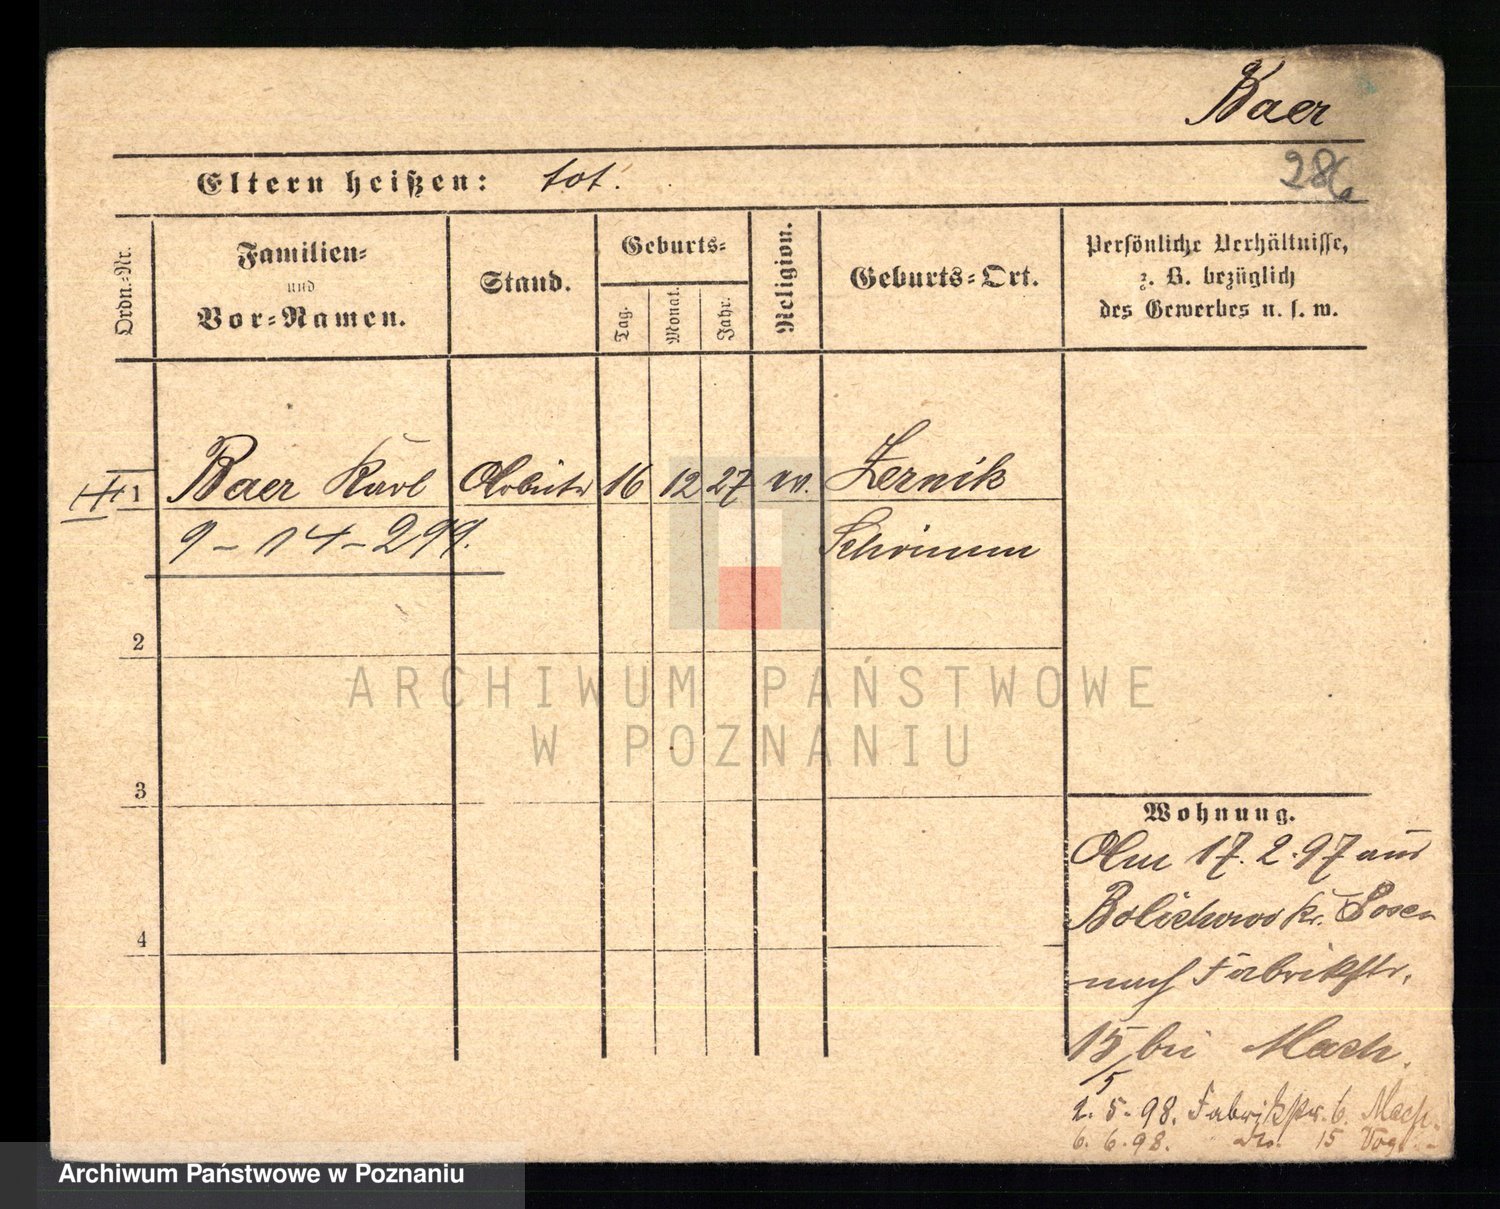 Baer
286
Eltern heißen: tot.
Ordn.-Nr.
Familien-
und
Vor-Namen.
Stand.
Geburts-
Tag.
Monat.
Jahr.
Religion.
Geburts-Ort.
Persönliche Verhältnisse,
z. B. bezüglich
des Gewerbes u. s. w.
1 Baer Karl Arbeiter 16 12 27 ev. Zernik
9-14-299. Schrimm
2
3
4
ARCHIWUM PAŃSTWOWE
W POZNANIU
Wohnung.
Am 17. 2. 97 aus
Bolechowo Kr. Posen
nach Fabrikstr.
15 bei Mach.
2. 5. 98. Fabrikstr. 6. Mach.
6. 6. 98. do. 15
Archiwum Państwowe w Poznaniu